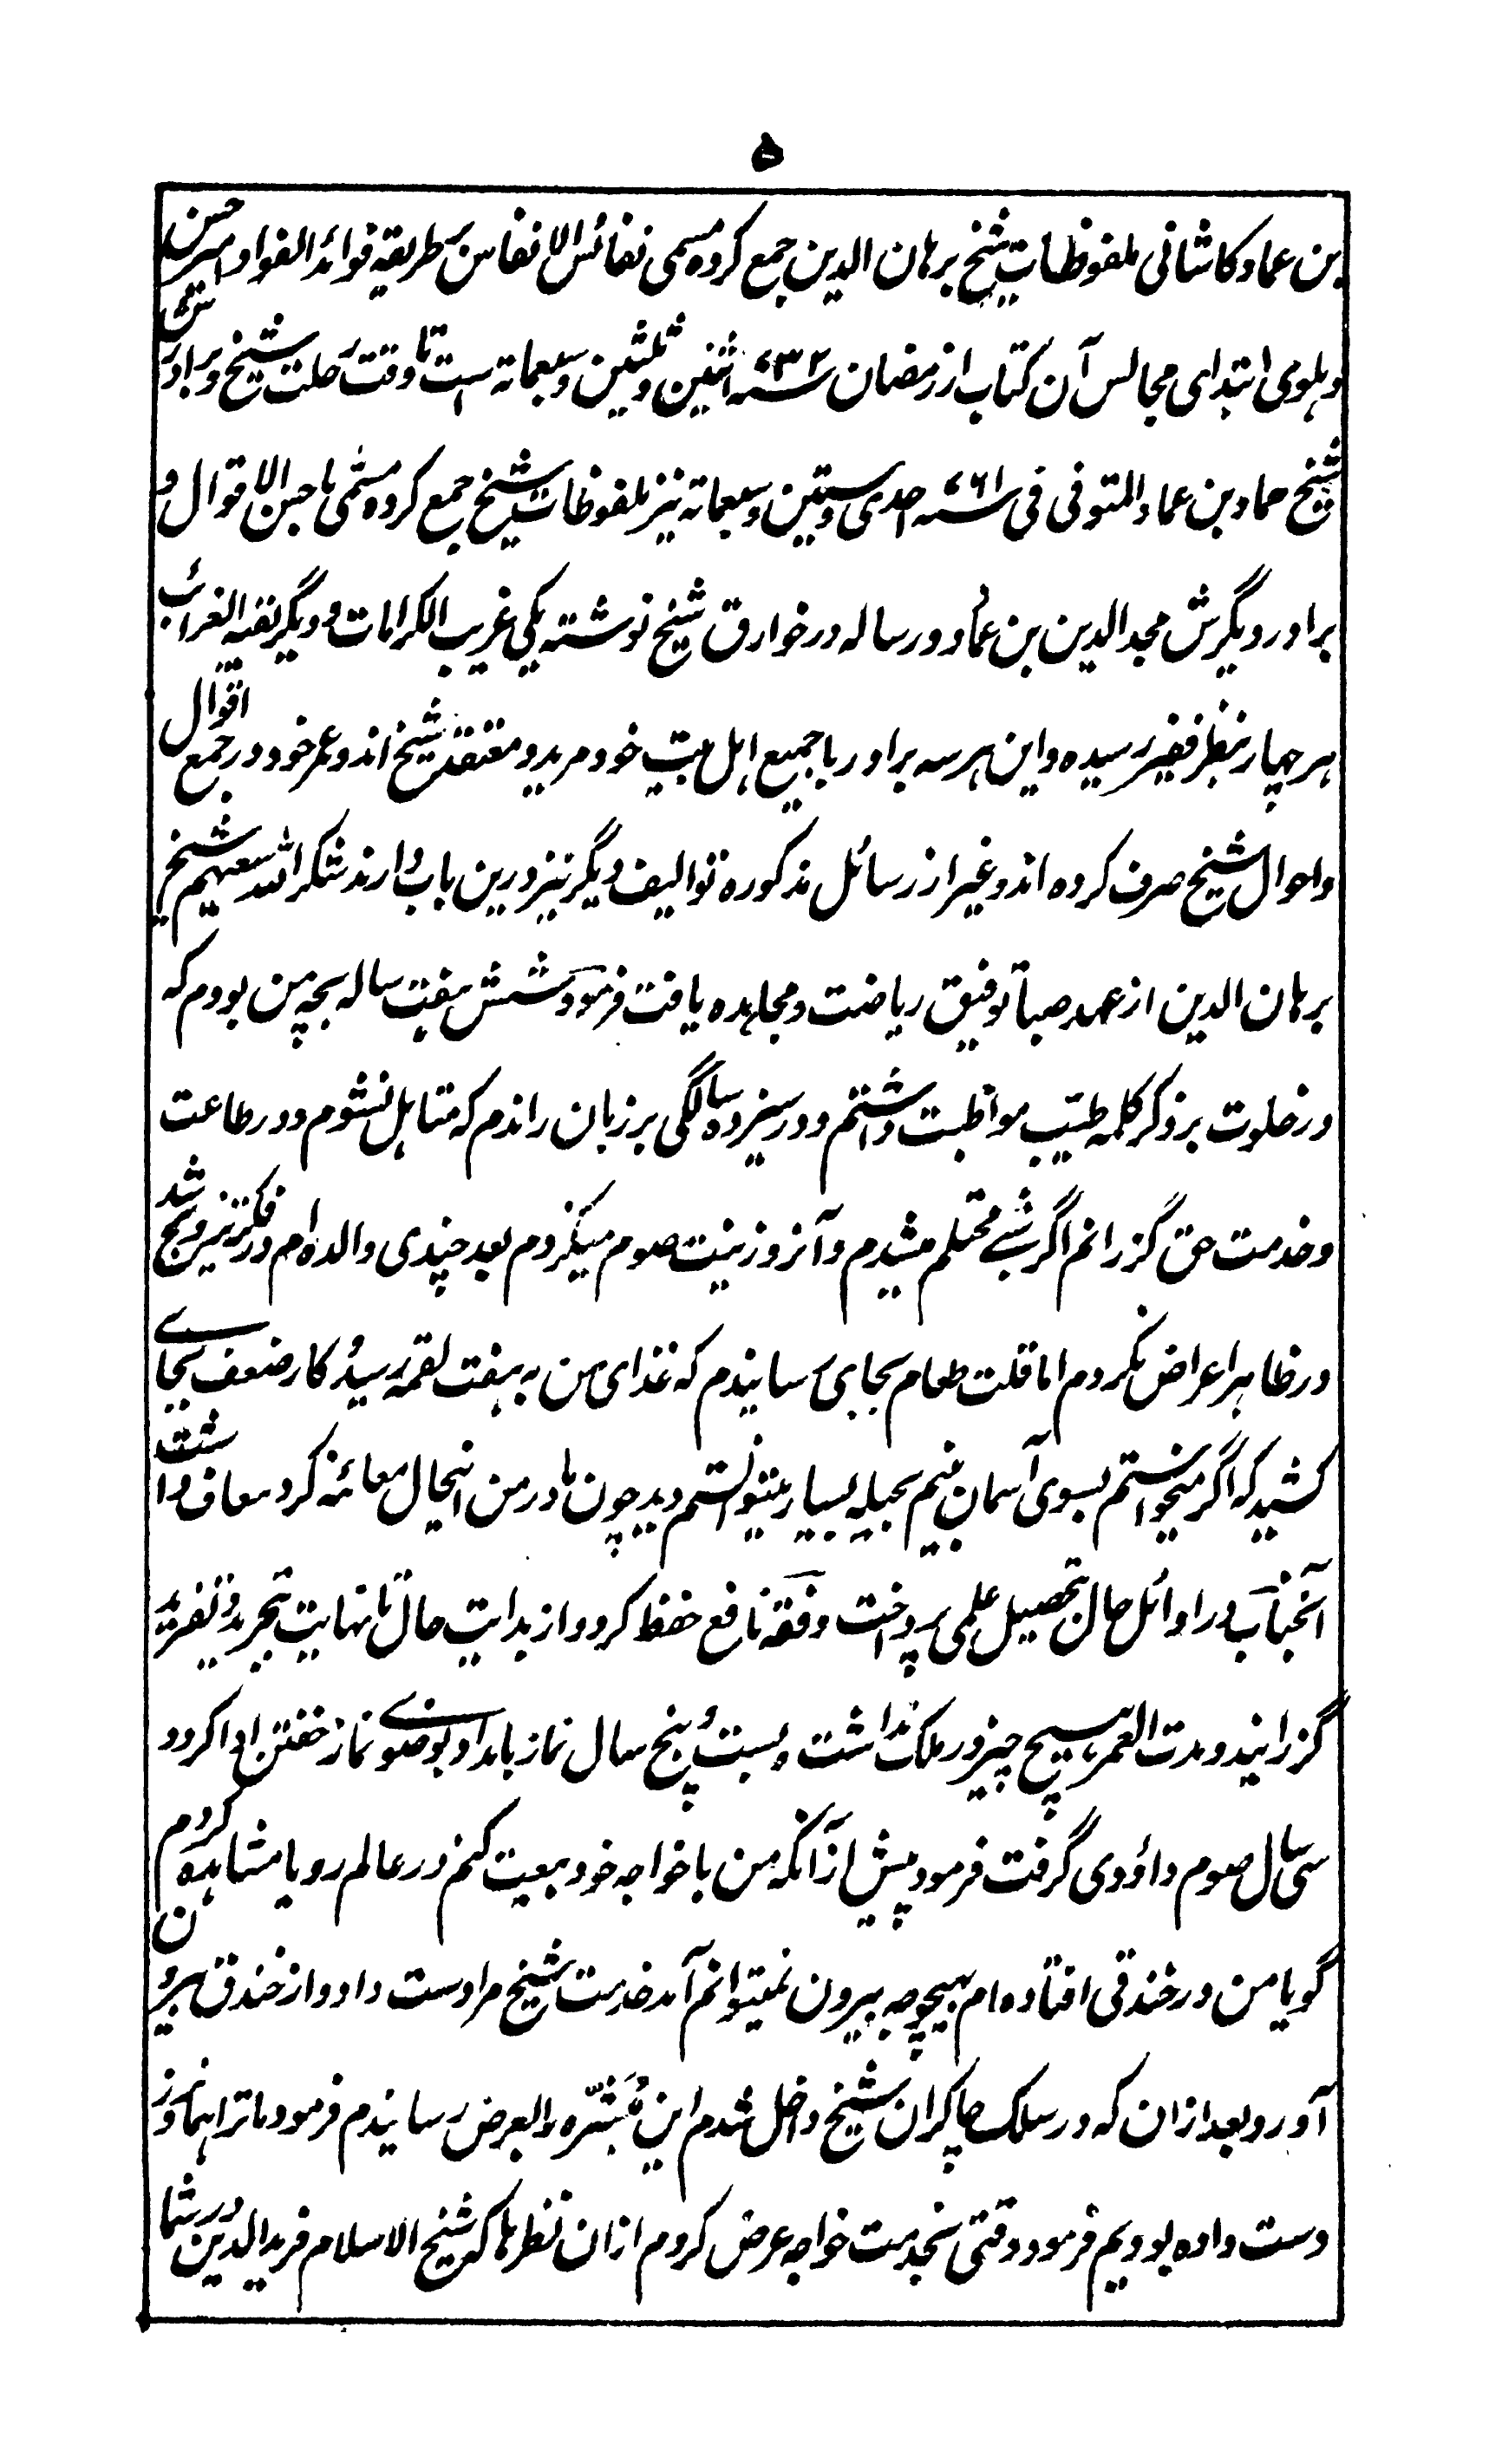 ۵
بن عماد کاشانی ملفوظات شیخ برهان الدین جمع کرده مسمی نفائس الانفاس بر طریقه فوائد الفواد امیر حسن
دهلوی ابتدای مجالس آن کتاب از رمضان سنه ۷۳۲ اثنین و ثلثین و سبعمایة است تا وقت رحلت شیخ و برادرش
شیخ حماد بن عماد المتوفی فی سنه ۷۶۱ احدی و ستین و سبعمایة نیز ملفوظات شیخ جمع کرده مسمّی باحسن الاقوال و
برادر دیگرش مجد الدین بن عماد دو رساله در خوارق شیخ نوشته یکی غریب الکرامات و دیگر بقیة الغرائب
هر چهار بنظر فقیر رسیده و این هر سه برادر با جمیع اهل بیت خود مرید و معتقد شیخ اند و عمر خود در جمع اقوال
و احوال شیخ صرف کرده اند و غیر از رسائل مذکوره توالیف دیگر نیز درین باب دارند شکر الله سعیهم شیخ
برهان الدین از عهد صبا توفیق ریاضت و مجاهده یافت فرمود شش هفت ساله بچه من بودم که
در خلوت بر ذکر کلمه طیّب مواظبت داشتم و در سیزده سالگی بر زبان راندم که متاهل نشوم و در طاعت
و خدمت حق گزرانم اگر شبے محتلم میشدم و آنروز نیت صوم میکردم بعد چندی والده ام در فکر تزویج شد
در ظاهر اعراض نکردم اما قلت طعام بجای رسانیدم که غذای من به هفت لقمه رسید و کار ضعف بجاے
کشید که اگر میخواستم بسوی آسمان بینم بحیله بسیار میتوانستم دید چون مادر من اینحال معائنه کرد معاف داشت
آنجناب در اوائل حال تحصیل علمی پرداخت و فقه نافع حفظ کرد و از بدایت حال تا نهایت تجرید و تفرید
گزرانید و مدت العمر هیچ چیز در ملک نداشت و بست و پنج سال نماز بامداد بوضوے نماز خفتن ادا کرد و
سی سال صوم داؤدی گرفت فرمود پیش از آنکه من با خواجه خود بیعت کنم در عالم رویا مشاهده کردم
گویا من در خندقی افتاده ام بهیچوجه بیرون نمیتوانم آمد خدمت شیخ مرا دست داد و از خندق بیرون
آورد و بعد ازان که در سلک چاکران شیخ داخل شدم این مُبشّره را بعرض رسانیدم فرمود ما ترا همانروز
دست داده بودیم فرمود وقتی بخدمت خواجه عرض کردم ازان نظرها که شیخ الاسلام فرید الدین در شما